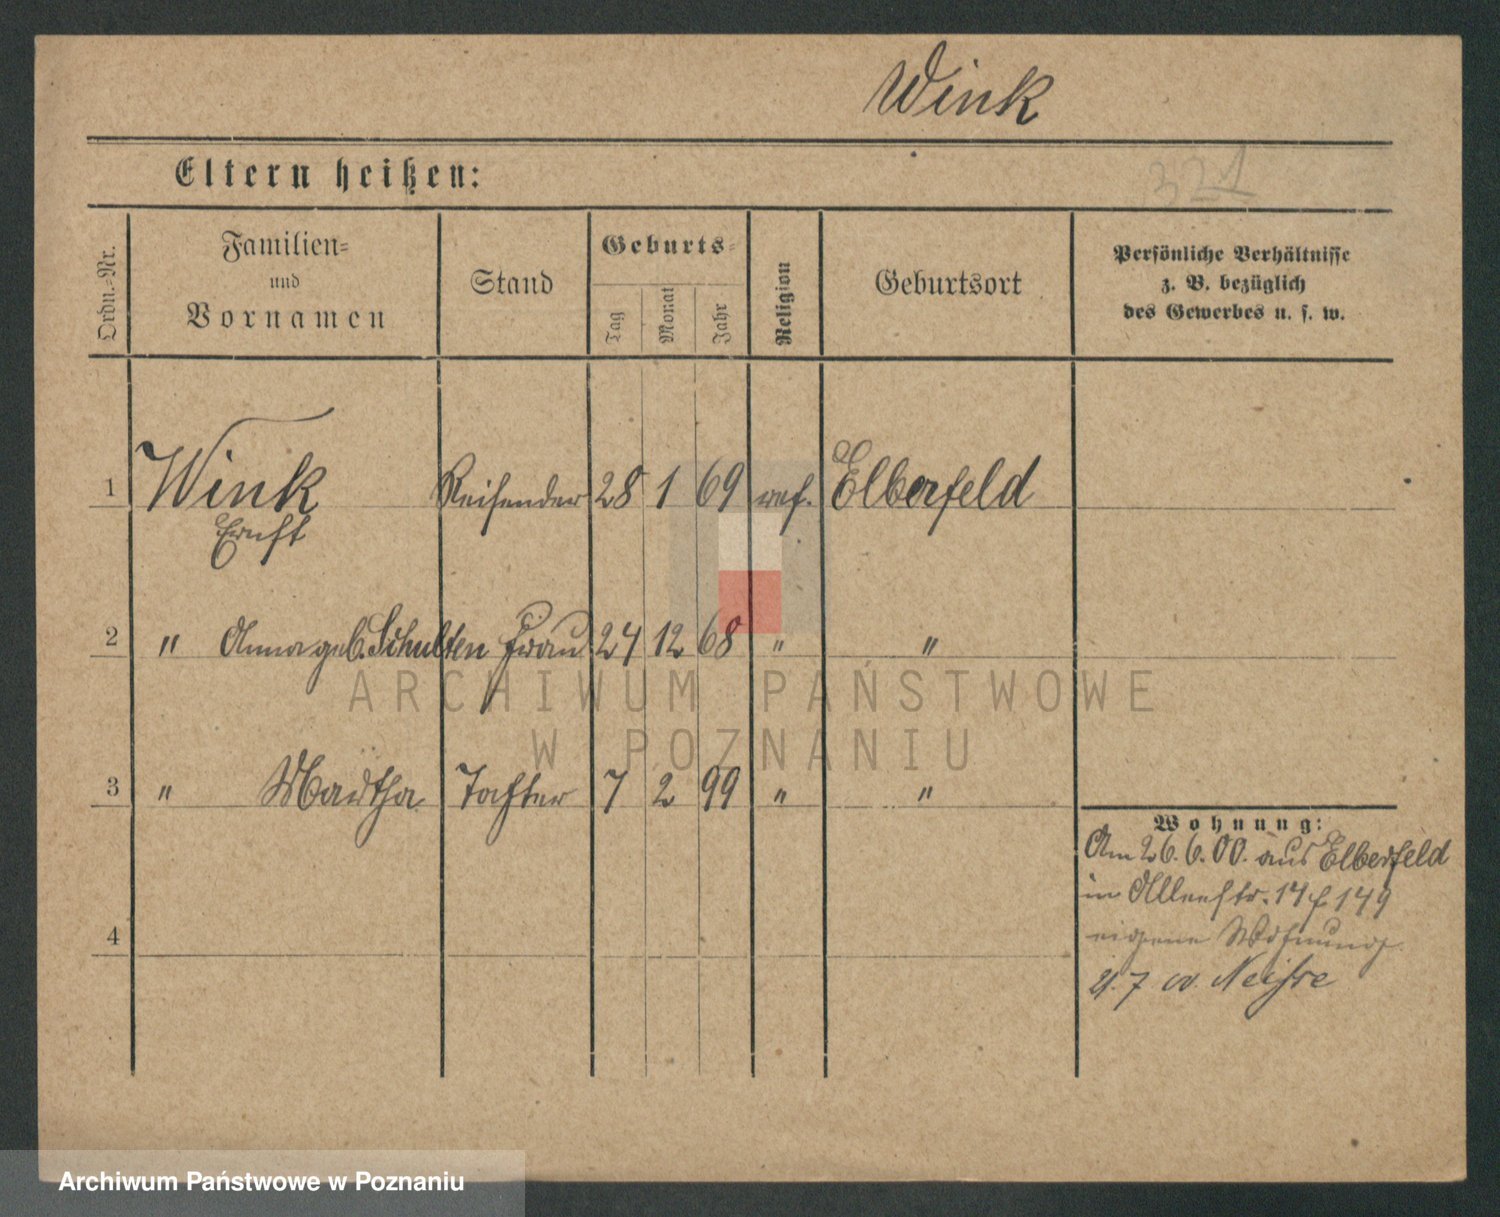 Wink
Eltern heißen:
321
Ordn.-Nr.
Familien-
und
Vornamen
Stand
Geburts-
Tag
Monat
Jahr
Religion
Geburtsort
Persönliche Verhältnisse
z. B. bezüglich
des Gewerbes u. s. w.
1 Wink Reisender 28 1 69 ref. Elberfeld
Ernst
2 " Anna geb. Schulten Frau 24 12 68 " "
3 " Martha Tochter 7 2 99 " "
4
Wohnung:
Am 26.6.00. aus Elberfeld
in Alleestr. 14 149
eigene Wohnung
21.7 00 Neisse
ARCHIWUM PAŃSTWOWE
W POZNANIU
Archiwum Państwowe w Poznaniu